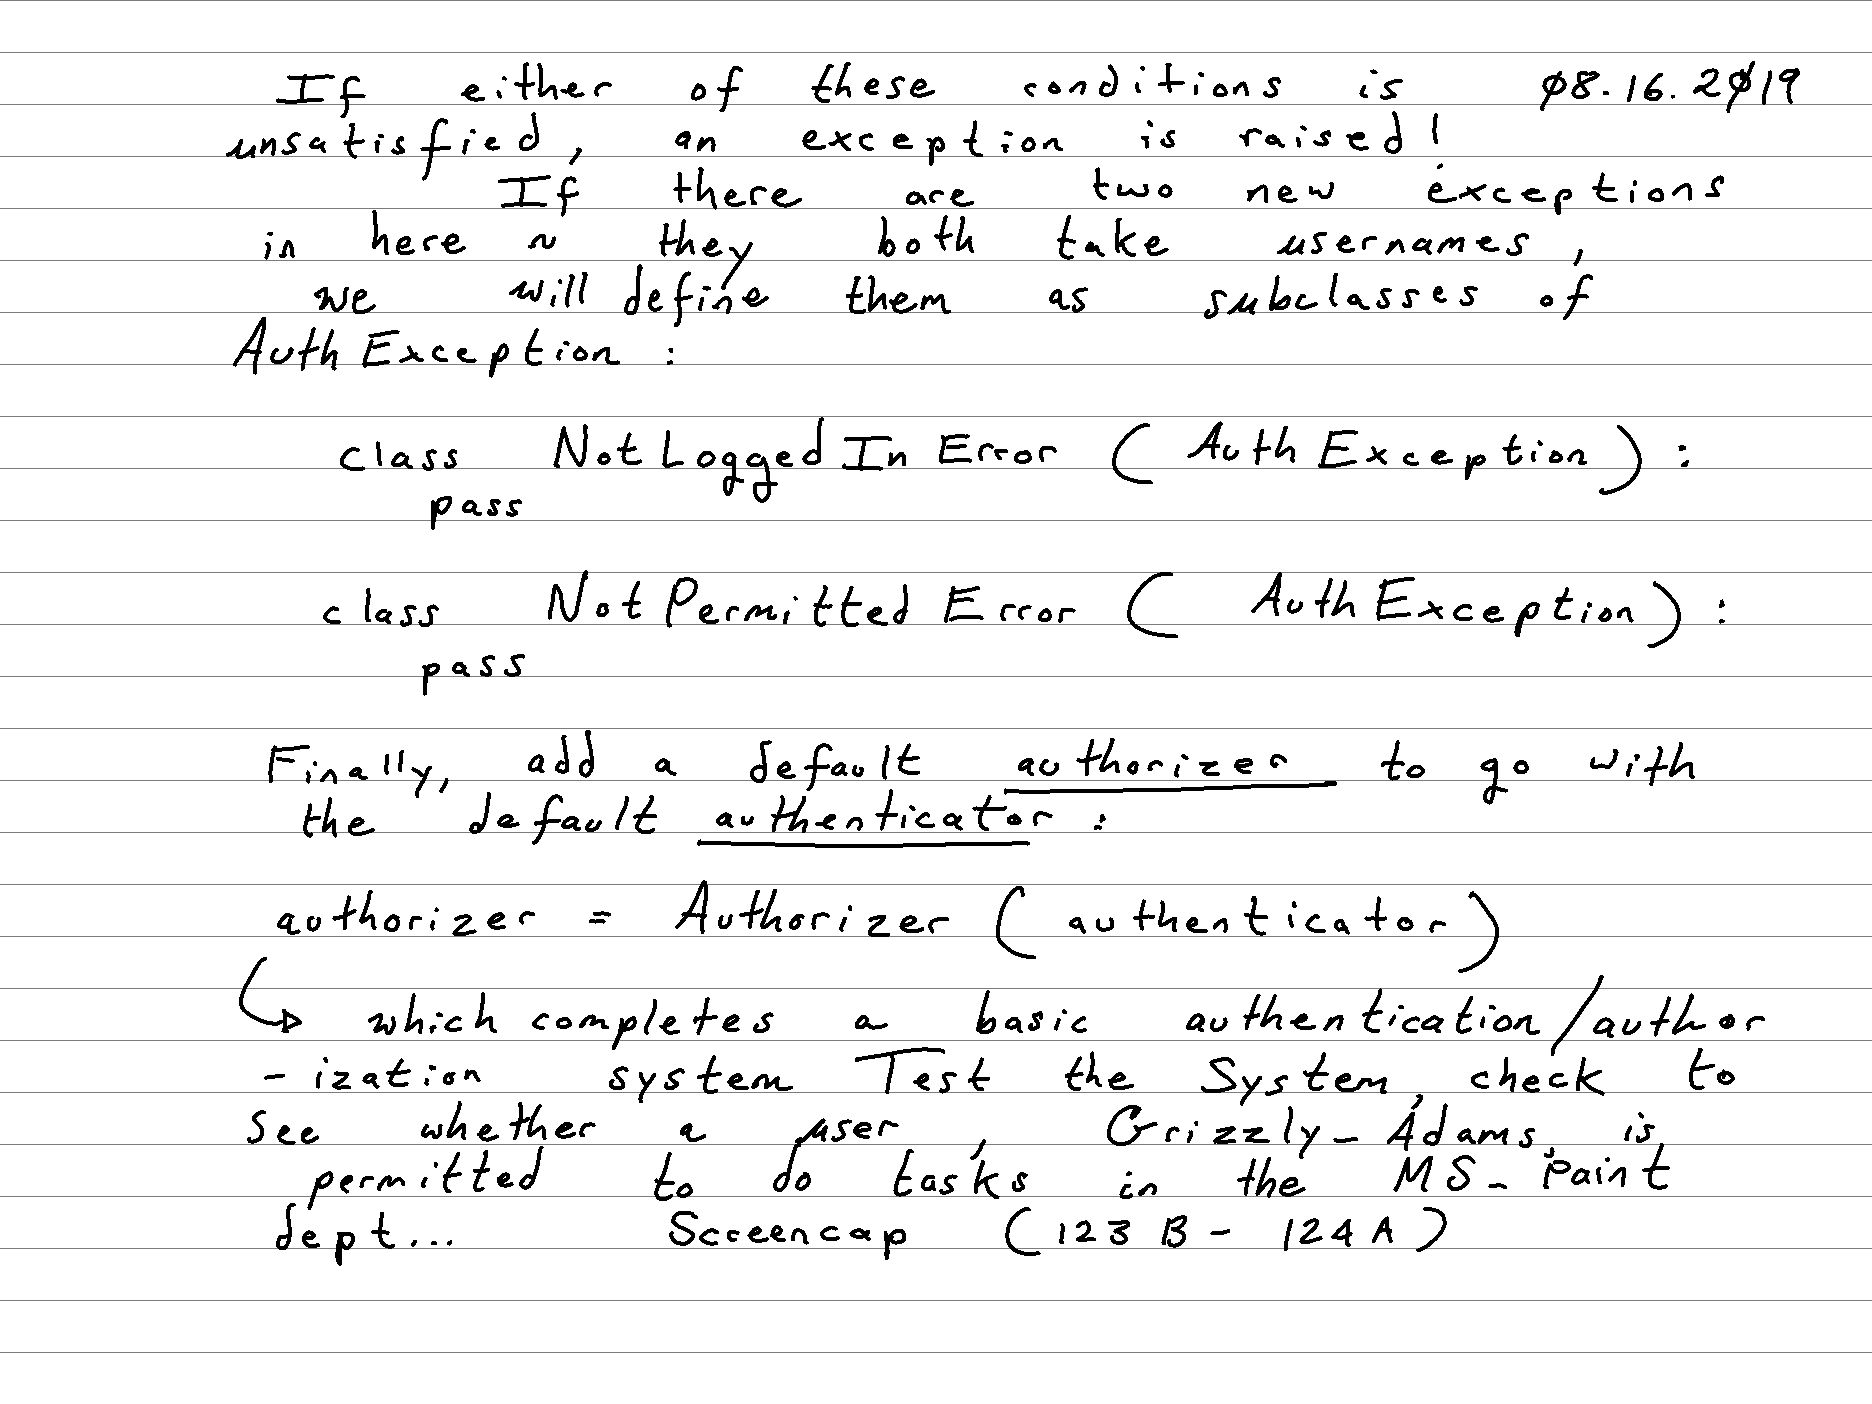 If either of these conditions is 08.16.2019
unsatisfied, an exception is raised!
If there are two new exceptions
in here ~ they both take usernames,
we will define them as subclasses of
AuthException :
class NotLoggedInError ( AuthException ) :
pass
class NotPermittedError ( AuthException ) :
pass
Finally, add a default authorizer to go with
the default authenticator :
authorizer = Authorizer ( authenticator )
↳ which completes a basic authentication/author
-ization system Test the System, check to
see whether a user, Grizzly-Adams, is
permitted to do tasks in the MS-Paint
dept... Screencap (123B - 124A)